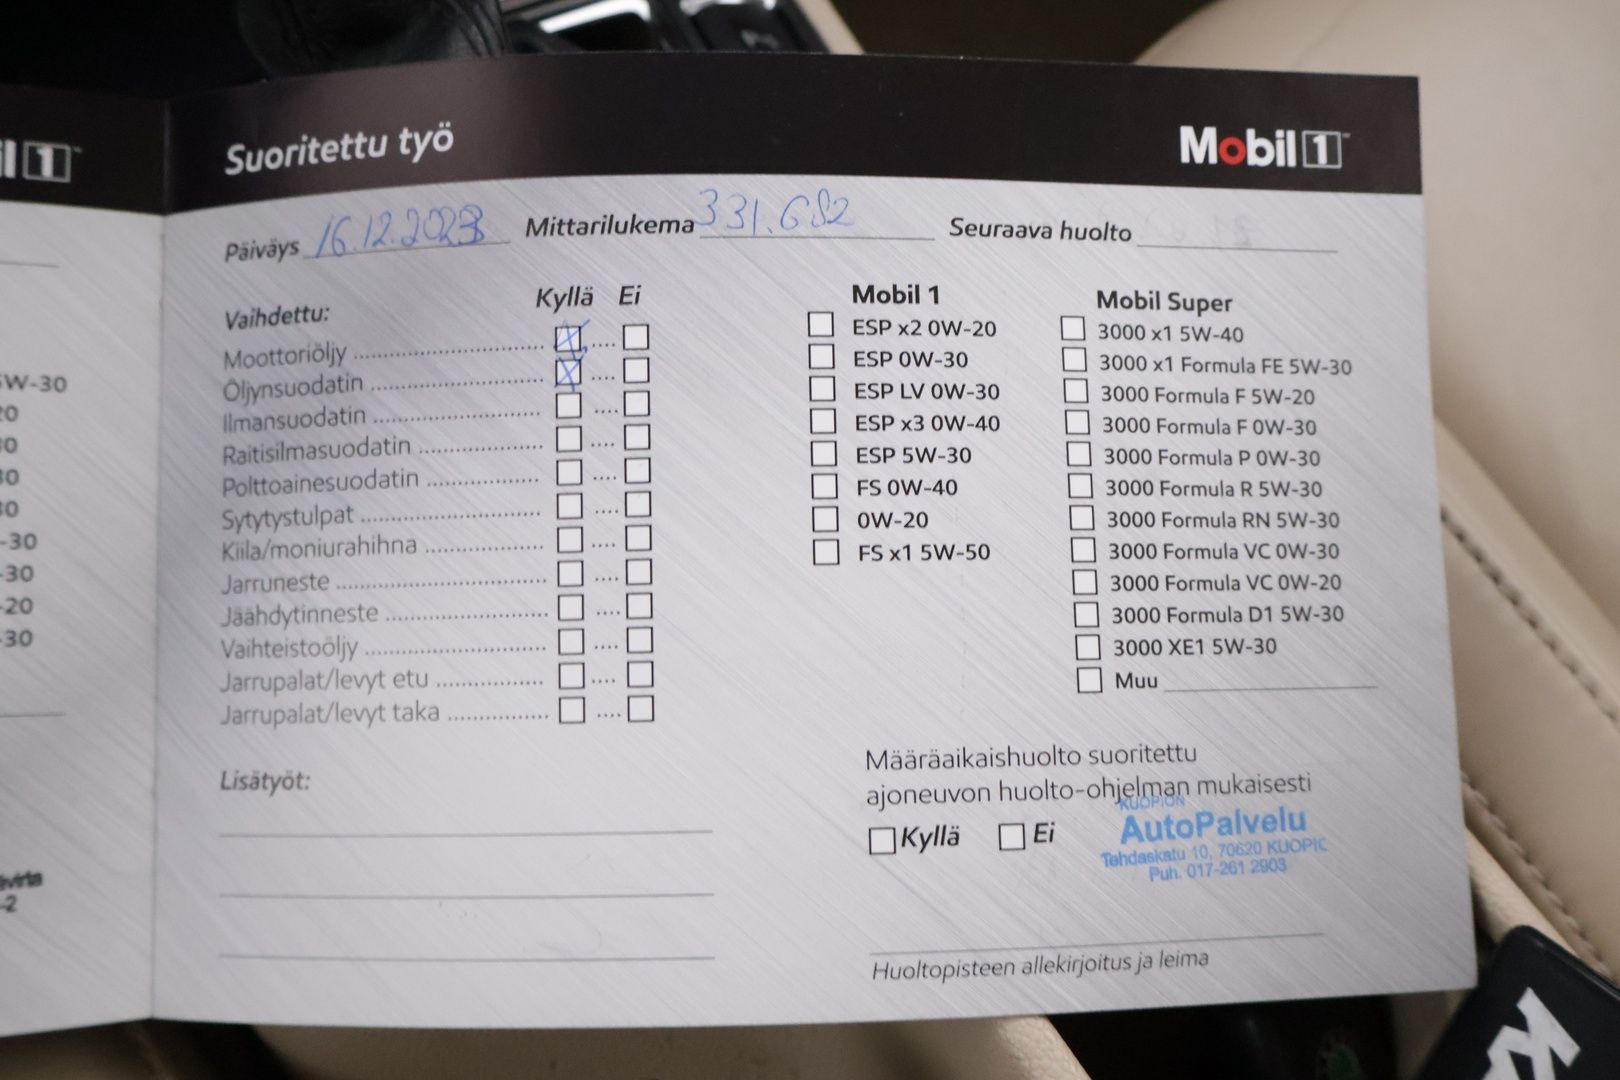 Suoritettu työ
Mobil 1
Päiväys 16.12.2023 Mittarilukema 331.682 Seuraava huolto
Vaihdettu: Kyllä Ei
Moottoriöljy
Öljynsuodatin
Ilmansuodatin
Raitisilmasuodatin
Polttoainesuodatin
Sytytystulpat
Kiila/moniurahihna
Jarruneste
Jäähdytinneste
Vaihteistoöljy
Jarrupalat/levyt etu
Jarrupalat/levyt taka
Lisätyöt:
Mobil 1
ESP x2 0W-20
ESP 0W-30
ESP LV 0W-30
ESP x3 0W-40
ESP 5W-30
FS 0W-40
0W-20
FS x1 5W-50
Mobil Super
3000 x1 5W-40
3000 x1 Formula FE 5W-30
3000 Formula F 5W-20
3000 Formula F 0W-30
3000 Formula P 0W-30
3000 Formula R 5W-30
3000 Formula RN 5W-30
3000 Formula VC 0W-30
3000 Formula VC 0W-20
3000 Formula D1 5W-30
3000 XE1 5W-30
Muu
Määräaikaishuolto suoritettu
ajoneuvon huolto-ohjelman mukaisesti
Kyllä Ei
KUOPION
AutoPalvelu
Tehdaskatu 10, 70620 KUOPIO
Puh. 017-261 2903
Huoltopisteen allekirjoitus ja leima